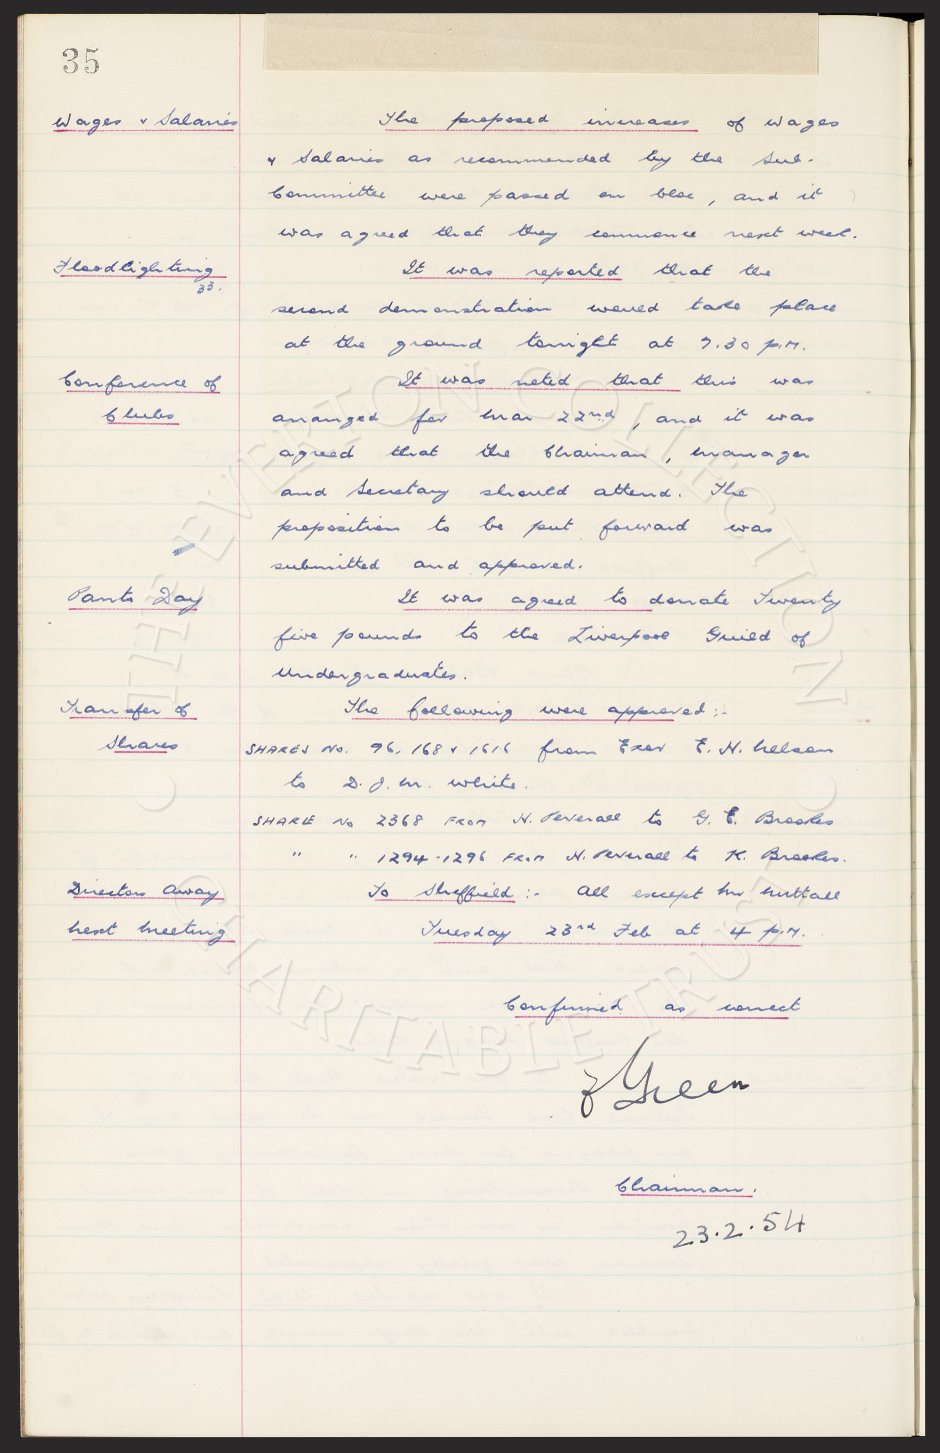 35
Wages & Salaries The proposed increases of Wages
& Salaries as recommended by the Sub-
Committee were passed en bloc, and it
was agreed that they commence next week.
Floodlighting It was reported that the
33.
second demonstration would take place
at the ground tonight at 7.30 p.m.
Conference of It was noted that this was
Clubs arranged for Mar 22nd, and it was
agreed that the Chairman, Manager
and Secretary should attend. The
proposition to be put forward was
submitted and approved.
Panto Day It was agreed to donate Twenty
five pounds to the Liverpool Guild of
Undergraduates.
Transfer of The following were approved:-
Shares SHARES No. 96, 168 & 1616 from Exor E. H. Nelson
to D. J. M. White.
SHARE No 2368 FROM H. Peverall to G. E. Brookes
" " 1294-1296 FROM H. Peverall to K. Brookes.
Directors Away To Sheffield:- All except Mr Nuttall
Next Meeting Tuesday 23rd Feb at 4 p.m.
Confirmed as correct
Green
Chairman.
23.2.54
THE EVERTON COLLECTION
CHARITABLE TRUST